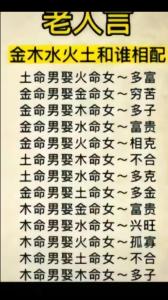 老人言
金木水火土和谁相配
土命男娶火命女～多富
金命男娶金命女～穷苦
金命男娶木命女～多子
金命男娶水命女～富贵
金命男娶火命女～相克
土命男娶木命女～不合
土命男娶水命女～多克
金命男娶土命女～多金
木命男娶金命女～富贵
木命男娶水命女～兴旺
木命男娶火命女～孤寡
木命男娶土命女～不合
木命男娶木命女～多子